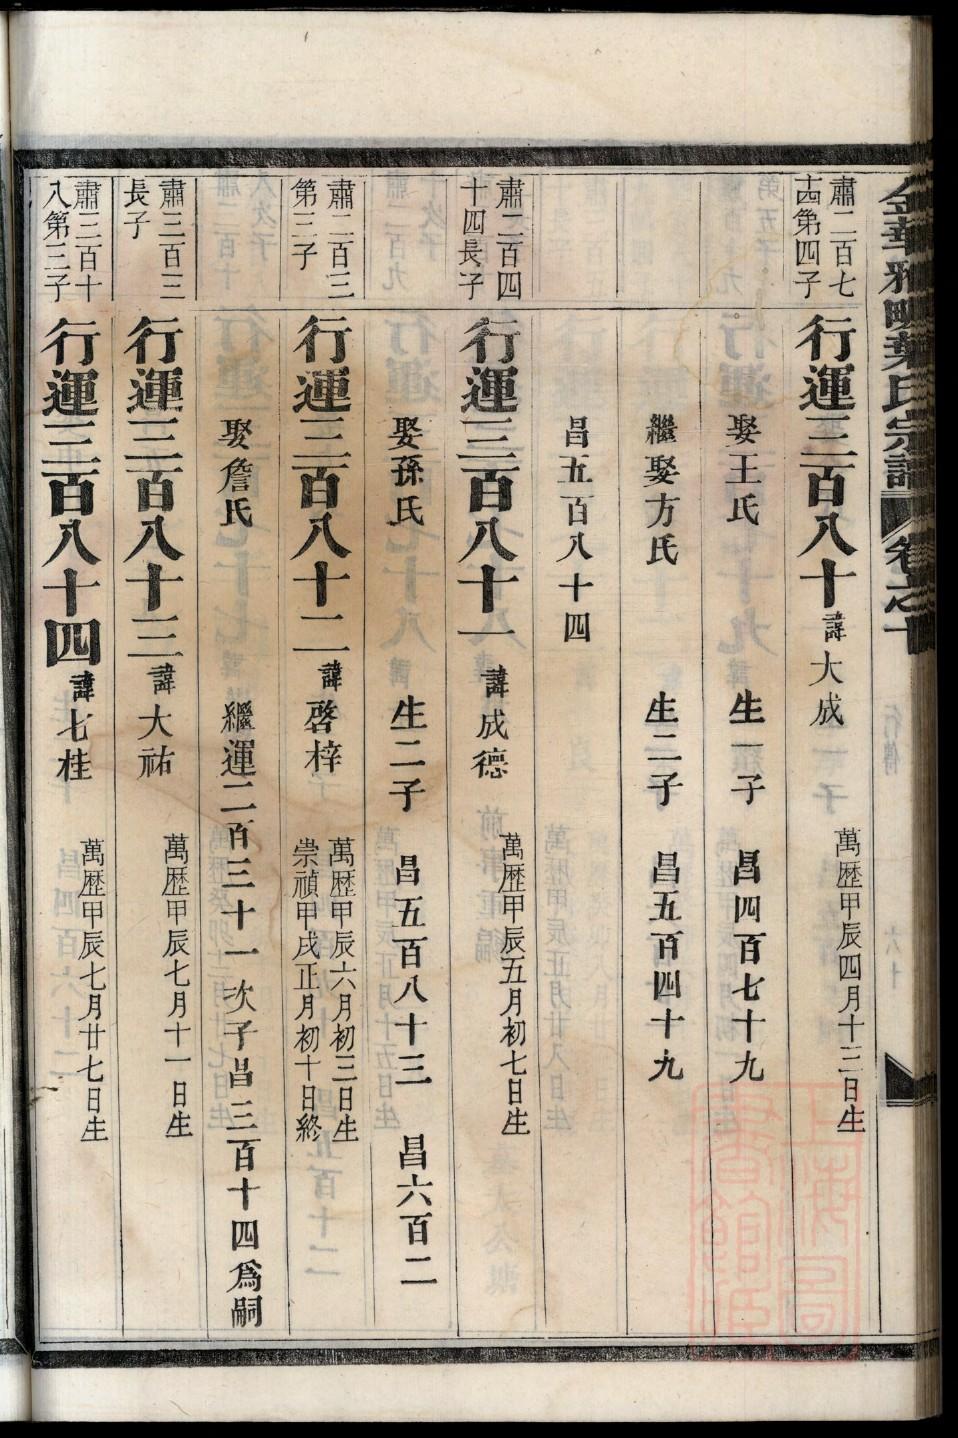 金華雅畈葉氏宗譜 卷之十
肅二百七
十四第四子
行運三百八十 諱大成 萬歷甲辰四月十三日生
娶王氏 生一子 昌四百七十九
繼娶方氏 生二子 昌五百四十九
昌五百八十四
肅二百四
十四長子
行運三百八十一 諱成德 萬歷甲辰五月初七日生
娶孫氏 生二子 昌五百八十三 昌六百二
肅二百三
第三子
行運三百八十二 諱啓梓 萬歷甲辰六月初三日生
崇禎甲戌正月初十日終
娶詹氏 繼運二百三十一次子昌三百十四爲嗣
肅三百二
長子
行運三百八十三 諱大祐 萬歷甲辰七月十一日生
肅三百十
八第三子
行運三百八十四 諱七桂 萬歷甲辰七月廿七日生